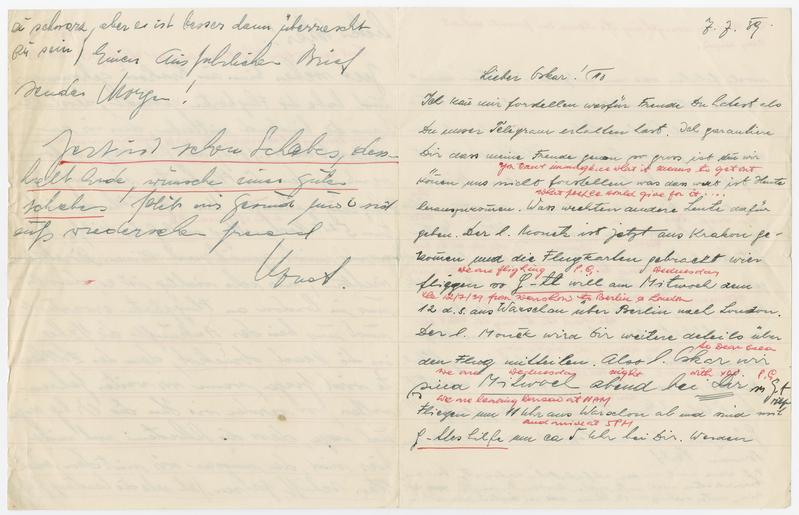 zu schwarz, aber es ist besser dann überrascht
zu sein, Einen Ausfuhrlichen Brief
sende Morgen!
Jetzt ist schon Schabes, dess-
halb Ende, wünsche einen guten
schabes! bleibt mir gesund und
aufs wiedersehen freuend
7. 7. 39.
Lieber Oskar!
Ich kan mir forstellen wasfür Freude Du hatest als
Du unser Telegram erhalten hast. Ich garantiere
Dir dass meine Freude genau so gross ist den wir
You cant immagine what it means to get out
können uns nicht forstellen was das wert ist Heute
what people would give for it....
herauszukommen. Was wirkten andere Leute dafür
geben. Der l. Monek ist jetzt aus Krakau ge-
komen und die Flugkarten gebracht wier
We are flighing P.G. Wednesday
fliegen so G-tt will am Mitwoch dem
the 12/7/39 from Warshow to Berlin to London
12 d.s. aus Warschau über Berlin nach London.
Der l. Monek wird dir weitere details über
So Dear Oscar
den Flug mitteilen. Also l. Oskar wir
We are Wednesday night with YOU P.G.
sind Mitwoch abend bei Dir m G-t
hilfe
We are leaving Warsaw at 11 AM
Fliegen um 11 uhr aus Warschau ab und sind mit
and arrive at 5 PM
G-ttes hilfe um ca 5 Uhr bei Dir. Werden